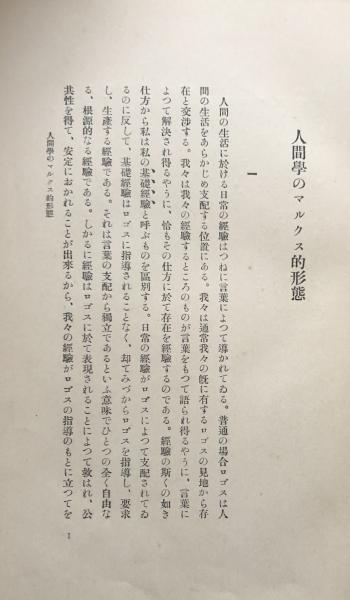 人間學のマルクス的形態
一
人間の生活に於ける日常の經驗はつねに言葉によつて導かれてゐる。普通の場合ロゴスは人
間の生活をあらかじめ支配する位置にある。我々は通常我々の旣に有するロゴスの見地から存
在と交渉する。我々は我々の經驗するところのものが言葉をもつて語られ得るやうに、言葉に
よつて解決され得るやうに、恰もその仕方に於て存在を經驗するのである。經驗の斯くの如き
仕方から私は私の基礎經驗と呼ぶものを區別する。日常の經驗がロゴスによつて支配されてゐ
るのに反して、基礎經驗はロゴスに指導されることなく、却てみづからロゴスを指導し、要求
し、生產する經驗である。それは言葉の支配から獨立であるといふ意味でひとつの全く自由な
る、根源的なる經驗である。しかるに經驗はロゴスに於て表現されることによつて救はれ、公
共性を得て、安定におかれることが出來るから、我々の經驗がロゴスの指導のもとに立つてを
人間學のマルクス的形態
1